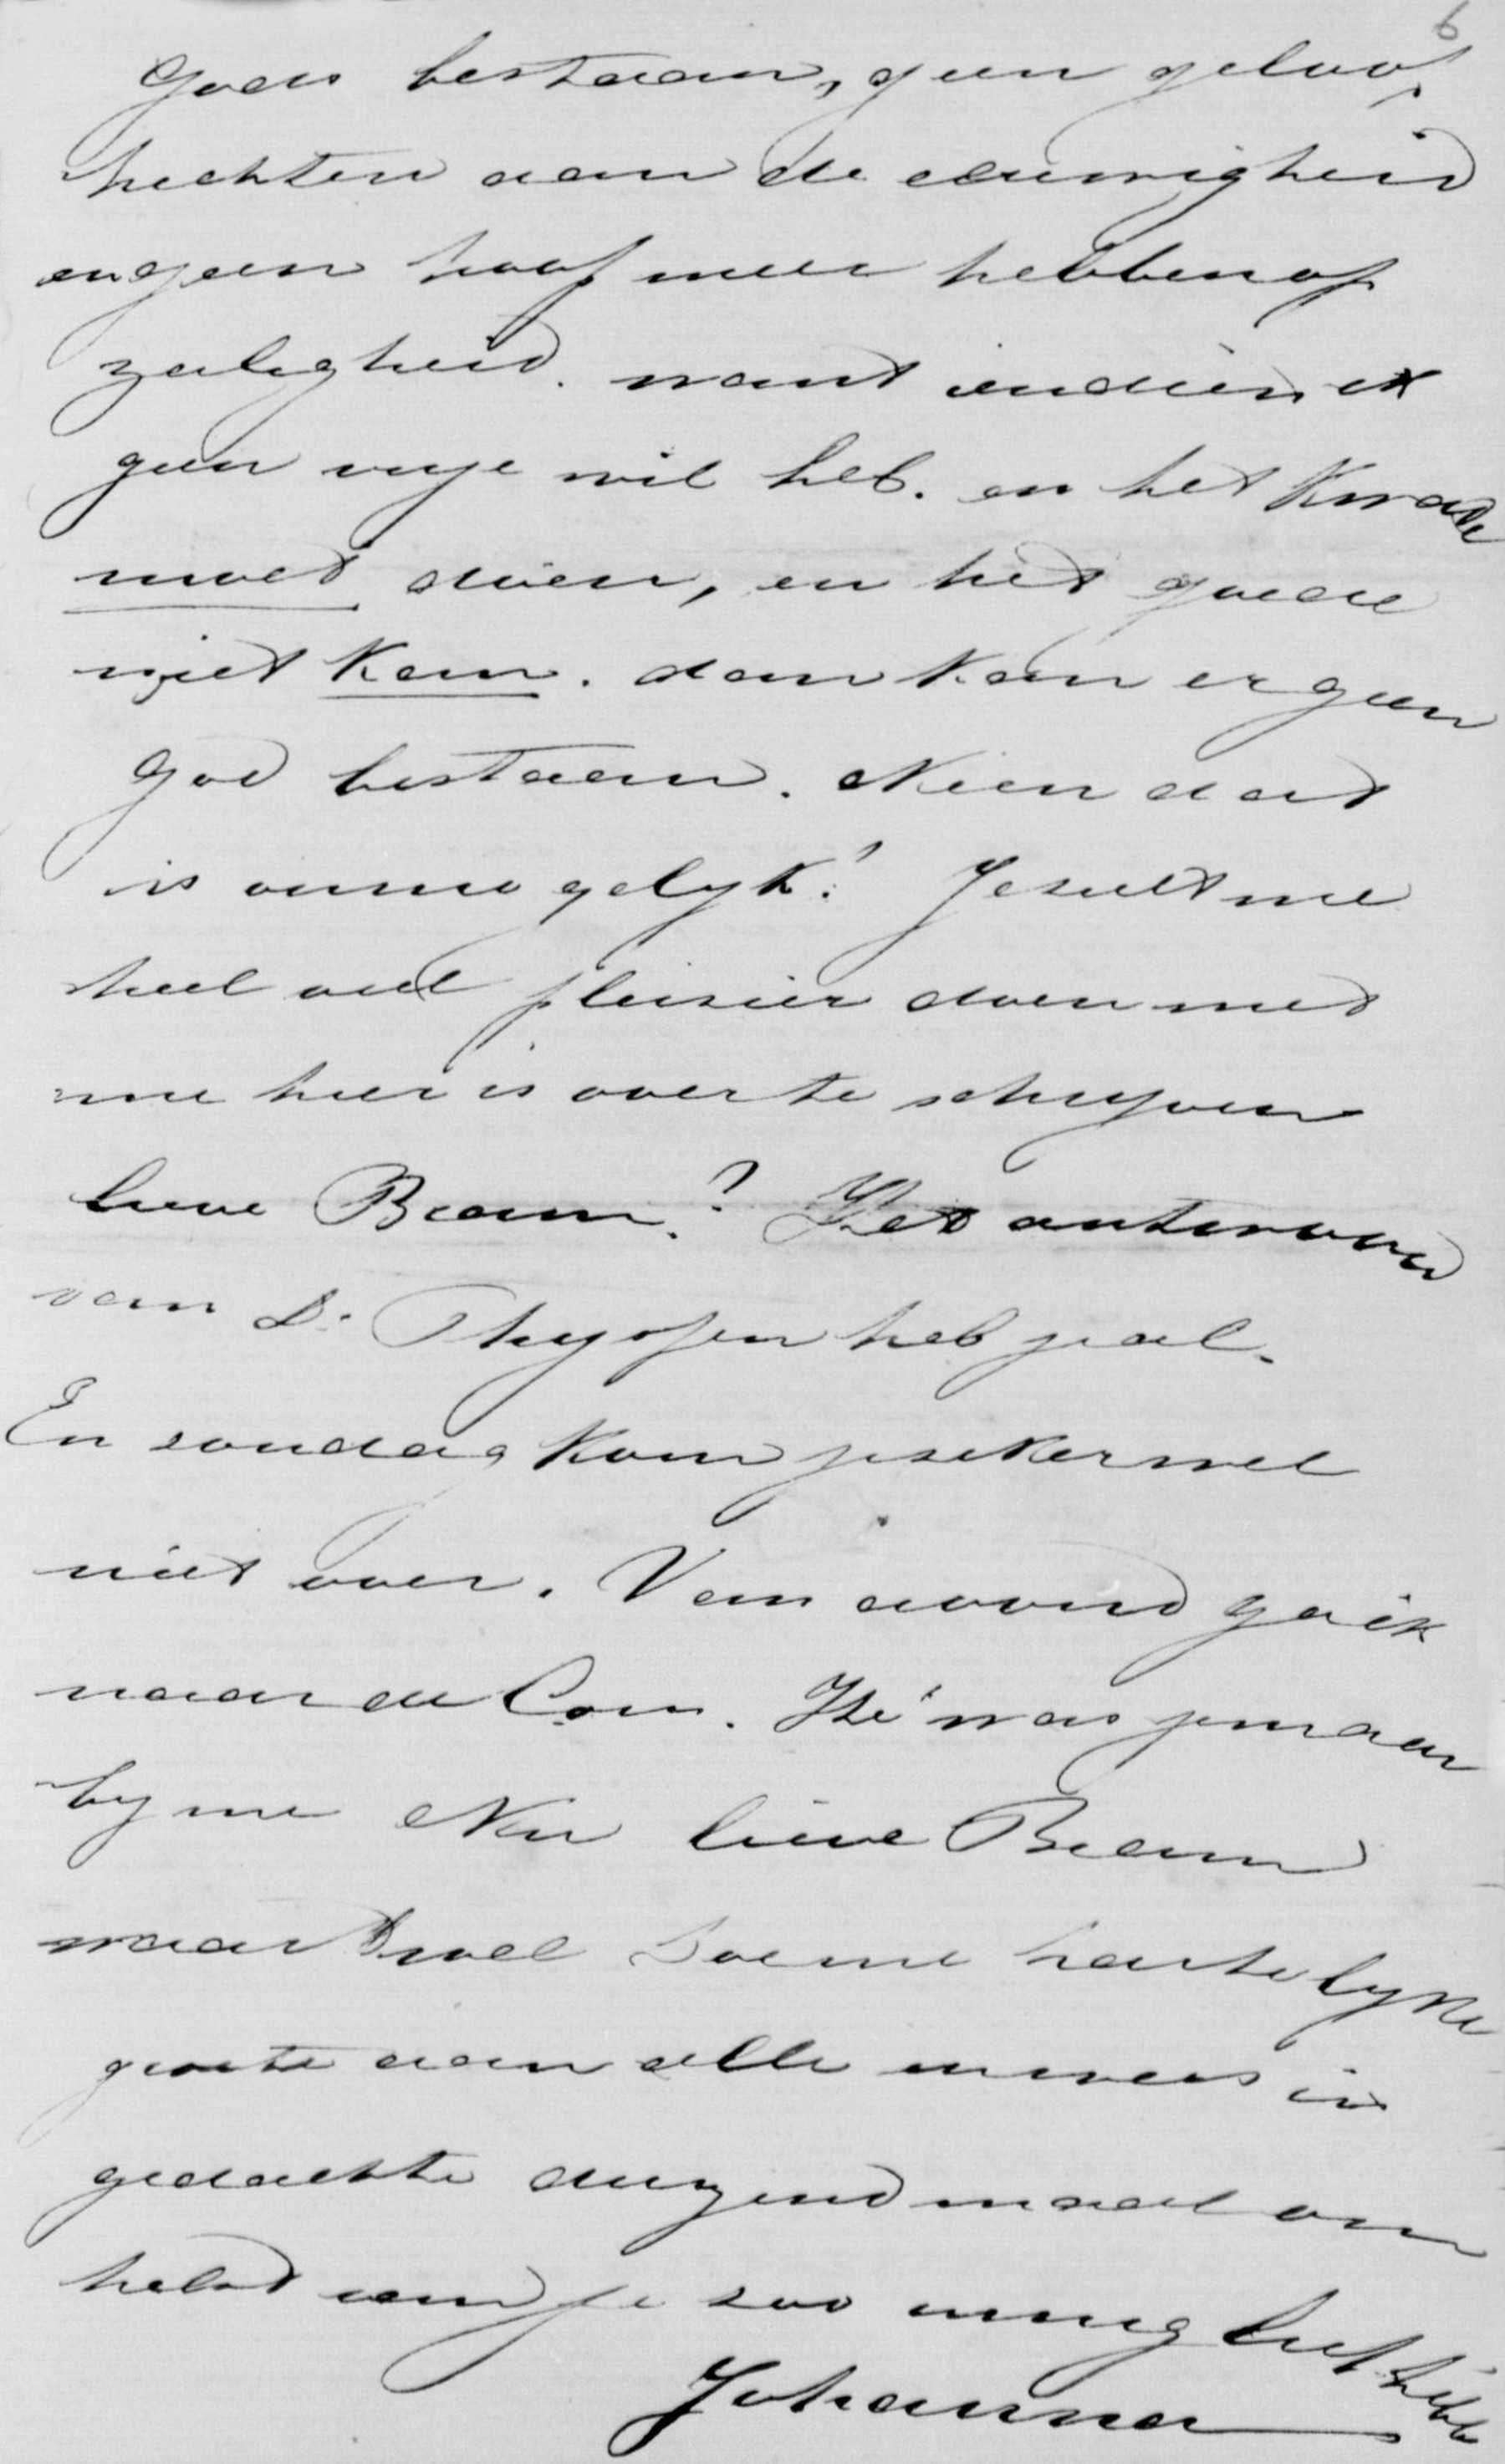 6
Gods bestaan, geen geloof
hechten aan de eeuwigheid
en geen hoop meer hebben op
zaligheid. want indien ik
geen vrije wil heb. en het Kwade
moet doen, en het goede
niet Kan. dan kan er geen
God bestaan. Neen dat
is onmogelyk! Je zult me
heel veel pleisier doen met
me hier is over te schryven
lieve Bram? Het antwoord
van Ds Thysen heb je al.
En sondag kom je seker wel
niet over. Van avond ga ik
naar de Com. Hé was je maar
by me Nu lieve Bram
vaartwel Doe me hartelyke
groete aan alle en wees in
gedachte duizendmaal om
helsd van je soo innig liefhebb
Johanna